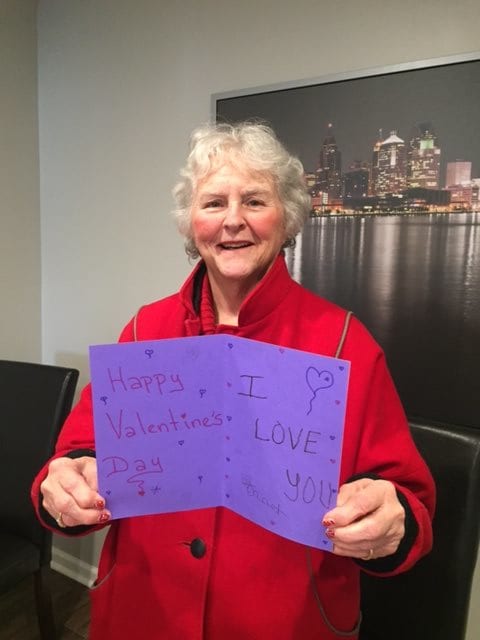 Happy
Valentine's
Day
I
LOVE
YOU